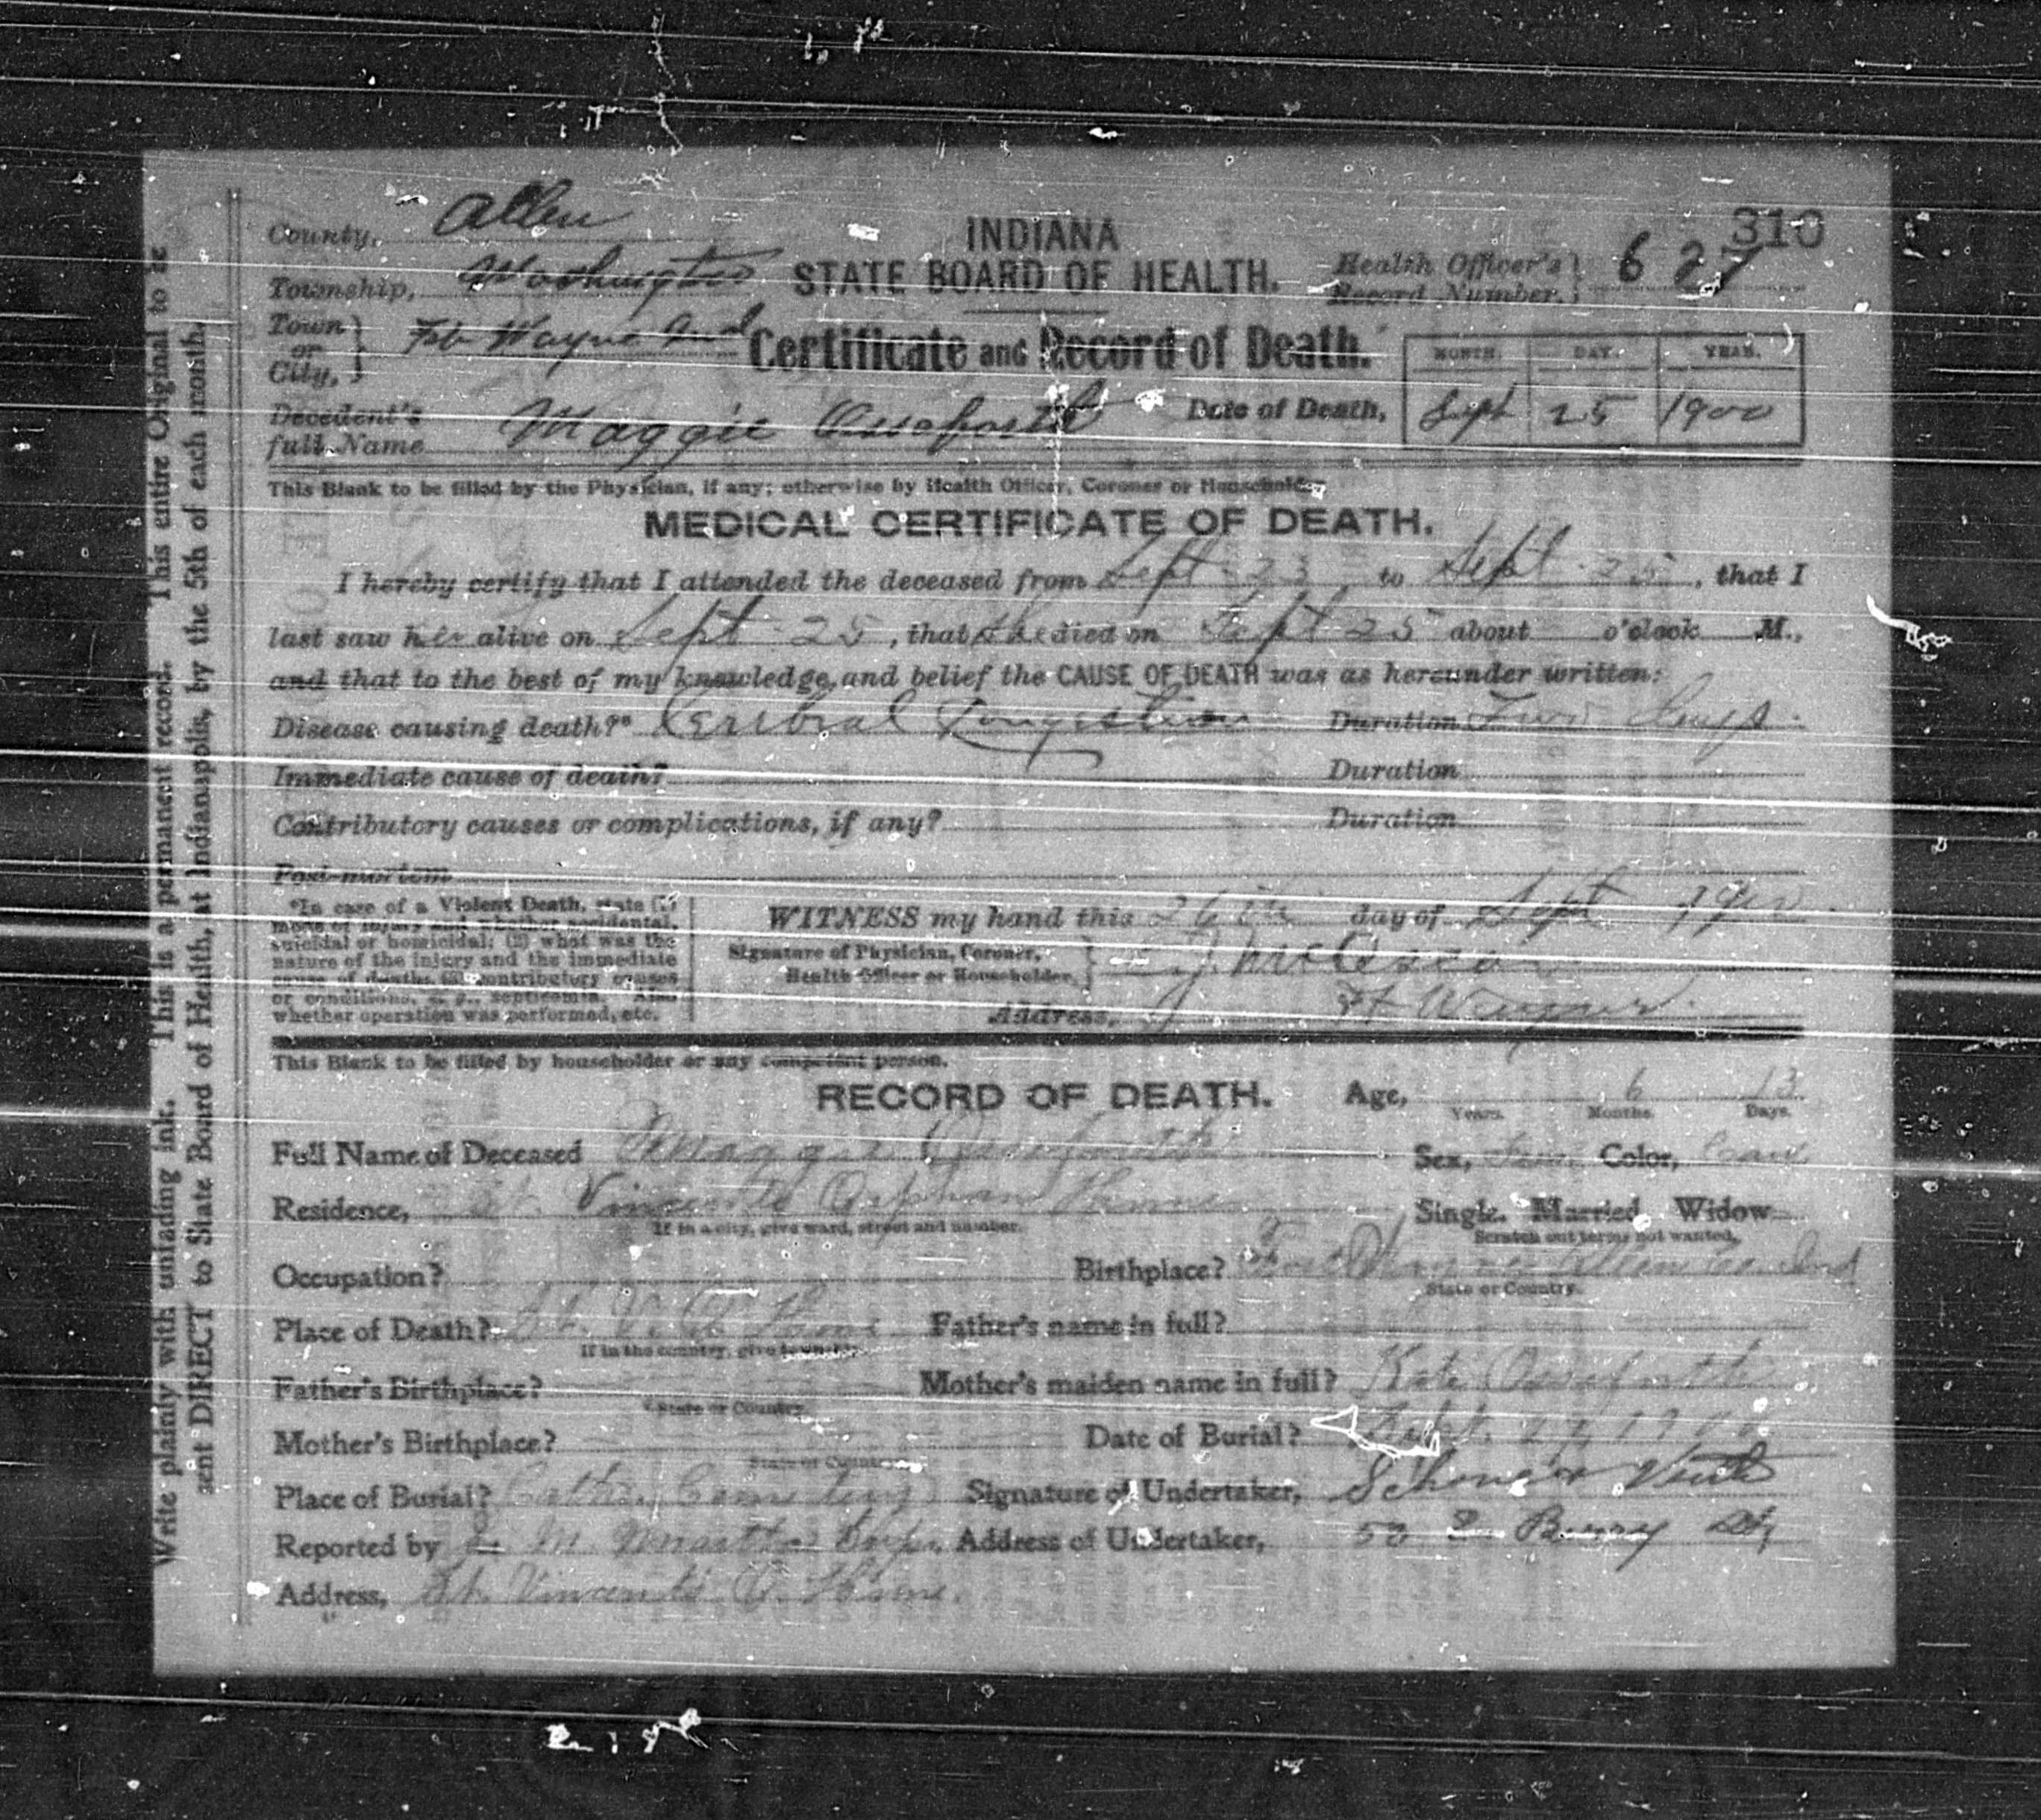 310
County, Allen
INDIANA
Township, Washington
STATE BOARD OF HEALTH.
Health Officer's Record Number. 627
Town or City, Ft. Wayne Ind
Certificate and Record of Death.
MONTH. DAY. YEAR.
Decedent's full Name Maggie
Date of Death, Sept 25 1900
This Blank to be filled by the Physician, if any; otherwise by Health Officer, Coroner or Householder
MEDICAL CERTIFICATE OF DEATH.
I hereby certify that I attended the deceased from Sept 23 to Sept 25, that I
last saw her alive on Sept 25, that she died on Sept 25 about o'clock M.,
and that to the best of my knowledge, and belief the CAUSE OF DEATH was as hereunder written:
Disease causing death?* Cerebral Congestion Duration Two days.
Immediate cause of death? Duration
Contributory causes or complications, if any? Duration
Post-mortem
*In case of a Violent Death, state (1)
means of injury and whether accidental,
suicidal or homicidal; (2) what was the
nature of the injury and the immediate
cause of death; (3) contributory causes
or conditions, e. g., septicemia. Also
whether operation was performed, etc.
WITNESS my hand this 26th day of Sept 1900
Signature of Physician, Coroner,
Health Officer or Householder,
Address, Ft Wayne
This Blank to be filled by householder or any competent person.
RECORD OF DEATH. Age, 6 13
Years. Months. Days.
Full Name of Deceased Maggie
Sex, Fem. Color, Cauc
Residence, St. Vincents Orphan Home
If in a city, give ward, street and number.
Single. Married Widow
Scratch out terms not wanted.
Occupation? Birthplace? Fort Wayne Allen Co. Ind
State or Country.
Place of Death? St. V. O. Home Father's name in full?
If in the country, give township.
Father's Birthplace? Mother's maiden name in full? Kate
State or Country.
Mother's Birthplace? Date of Burial? Sept. 1900
State or Country.
Place of Burial? Cath. Cemetery Signature of Undertaker,
Reported by M. Supr. Address of Undertaker, 50 E Berry St,
Address, St. Vincents O. Home.
Write plainly with unfading ink. This is a permanent record. This entire Original to be
sent DIRECT to State Board of Health, at Indianapolis, by the 5th of each month.